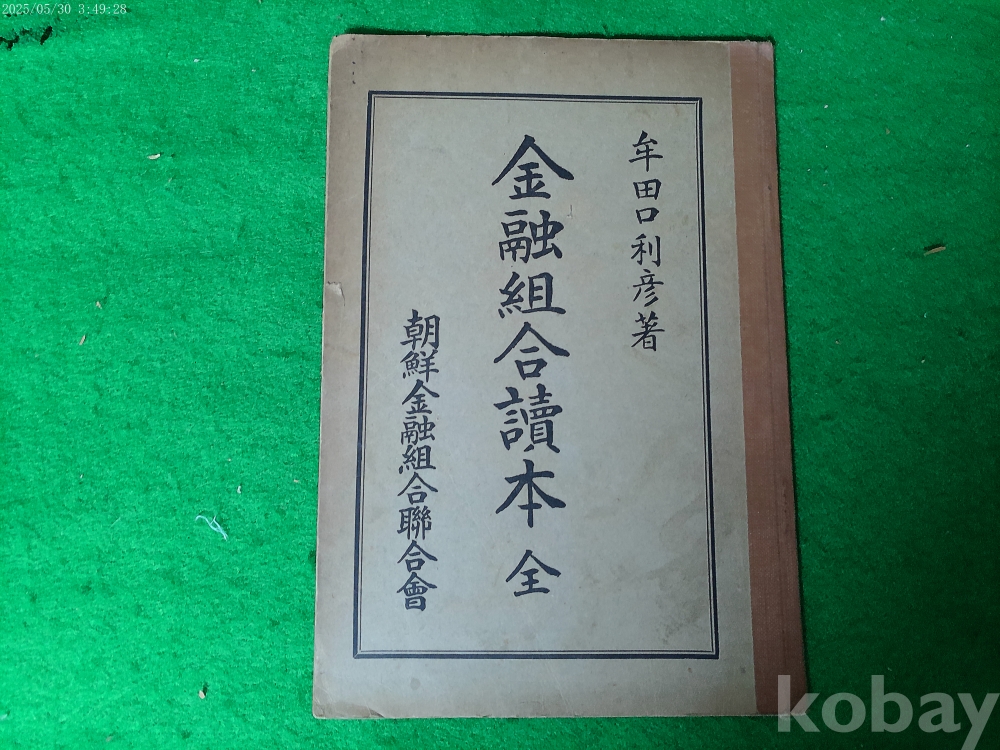 2025/05/30 3:49:28
牟田口利彦著
金融組合讀本 全
朝鮮金融組合聯合會
kobay